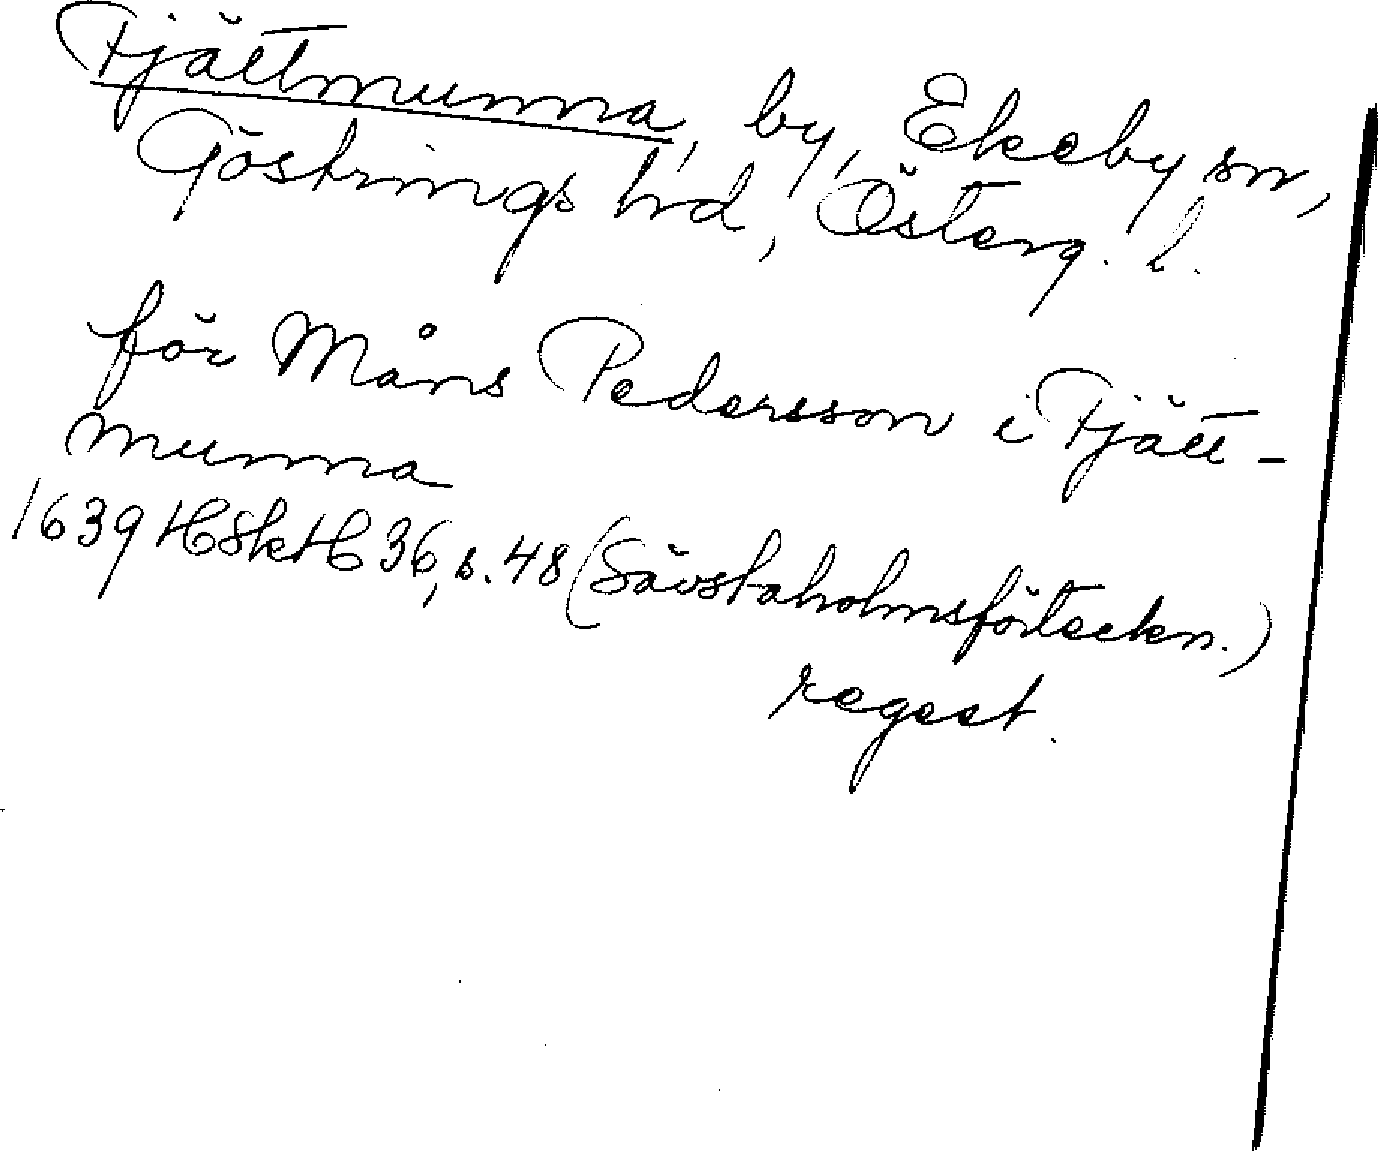 Fjättmunna, by, Ekeby sn,
Göstrings hd, Österg. l.
för Måns Pedersson i Fjätt-
munna
1639 HSkH 36, s. 48 (Sävstaholmsförteckn.)
regest.